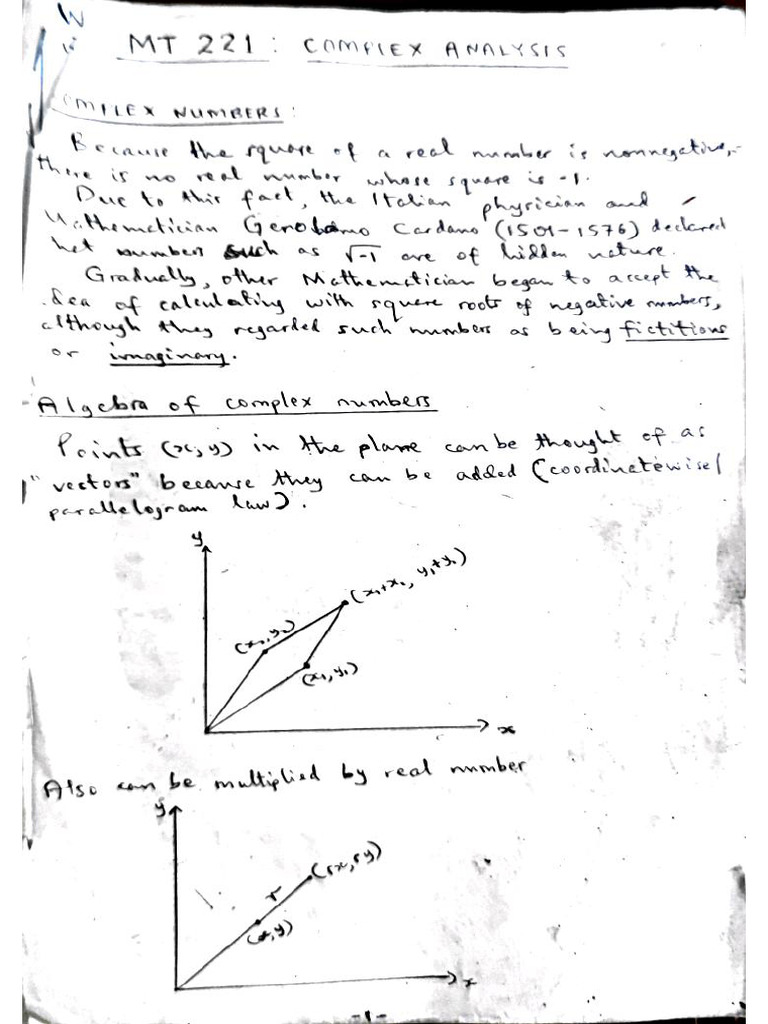 MT 221 : COMPLEX ANALYSIS
OMPLEX NUMBERS:
Because the square of a real number is nonnegative,
there is no real number whose square is -1.
Due to this fact, the Italian physician and
Mathematician Gerolamo Cardano (1501-1576) declared
hat numbers such as √-1 are of hidden nature.
Gradually, other Mathematician began to accept the
dea of calculating with square roots of negative numbers,
although they regarded such numbers as being fictitious
or imaginary.
Algebra of complex numbers
Points (x,y) in the plane can be thought of as
"vectors" because they can be added (coordinatewise/
parallelogram law).
y
(x₁+x₂, y₁+y₂)
(x₂,y₂)
(x₁,y₁)
x
Also can be multiplied by real number
y
(rx,ry)
r
(x,y)
x
-1-